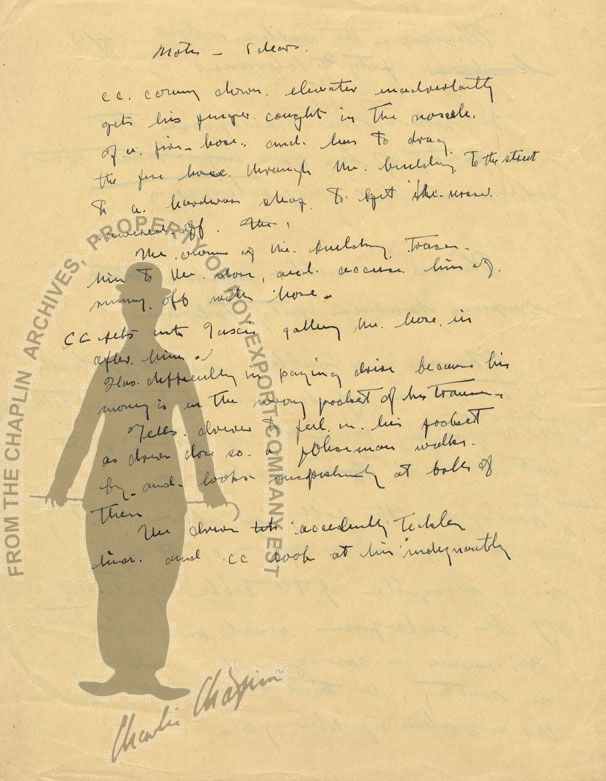 Notes - Ideas.
cc. coming down. elevator inadvertantly
gets his finger caught in the nossle.
of a. fire-hose. and. has to drag.
the fire hose through the. building to the street
to a. hardware shop to get the nossle
off. the.
The owner of the. building traces.
him to the. store, and. accuses him of.
running off with hose.
CC gets into taxi pulling the. hose in
after. him.
Has. difficulty in paying driver because his
money is in the wrong pocket of his trousers.
Tells driver to feel in. his pocket
as driver does so. a policeman walks.
by. and. looks suspiciously at both of
them
The driver accidently tickles
him. and cc look at him indignantly
FROM THE CHAPLIN ARCHIVES, PROPERTY OF ROY EXPORT COMPANY EST
Charlie Chaplin